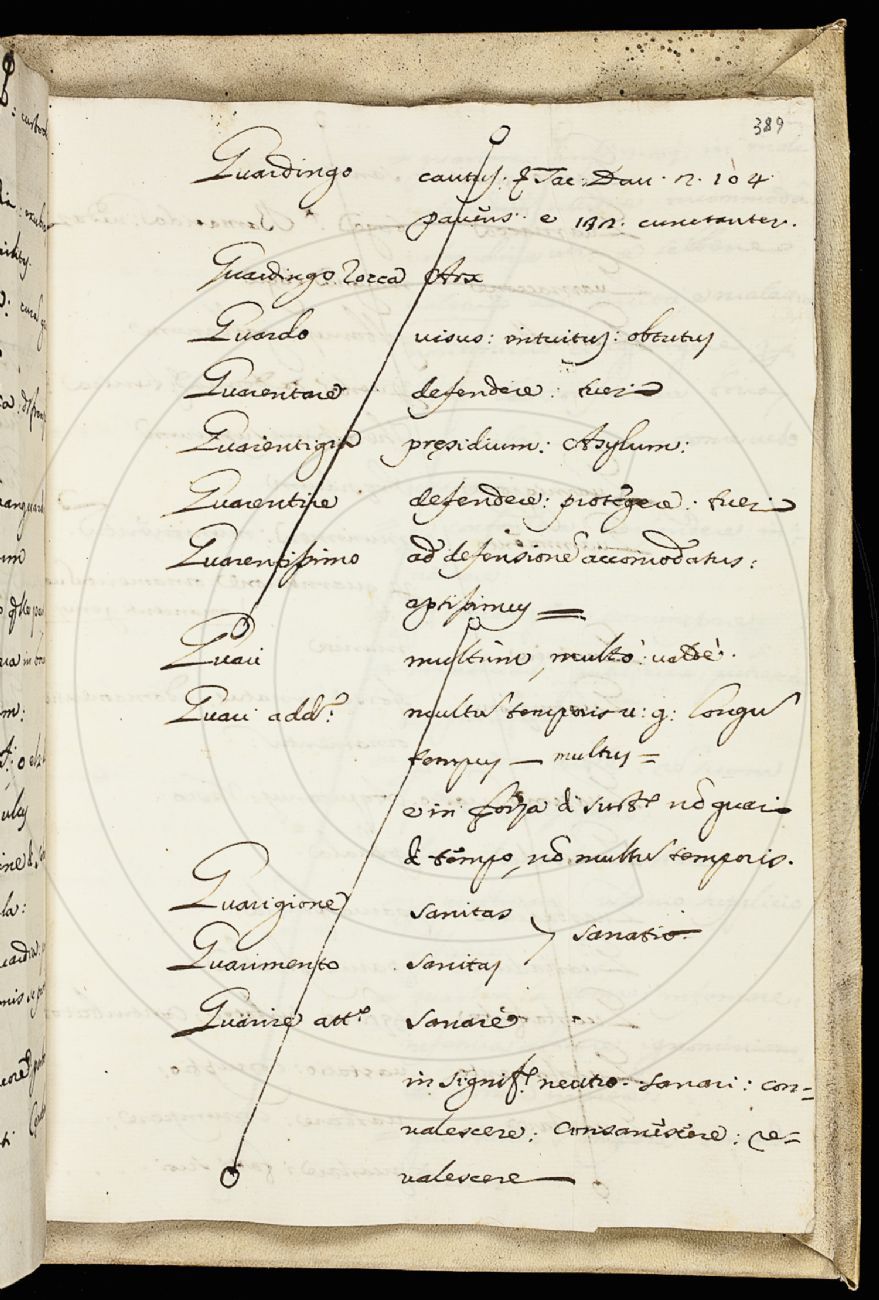 389
Guardingo cautus. Tac. Dau. n. 104
pauens. e 192. cunctanter.
Guardingo Rocca Arx
Guardo uisus: intuitus: obtutus
Guarentare defendere: tueri
Guarentigia pręsidium: Asylum:
Guarentire defendere: protegere: tueri
Guarentissimo ad defensionē accomodatus:
aptissimus
Guari multùm, multò: ualdè.
Guari add.º multū temporis u: g: longū
tempus — multus =
e in forza di sust.º nō guari
di tempo, nō multū temporis.
Guarigione sanitas
Guarimento sanitas } sanatio.
Guarire att.º sanare
in signif.º neutro. sanari: con=
ualescere: consanescere: re=
ualescere